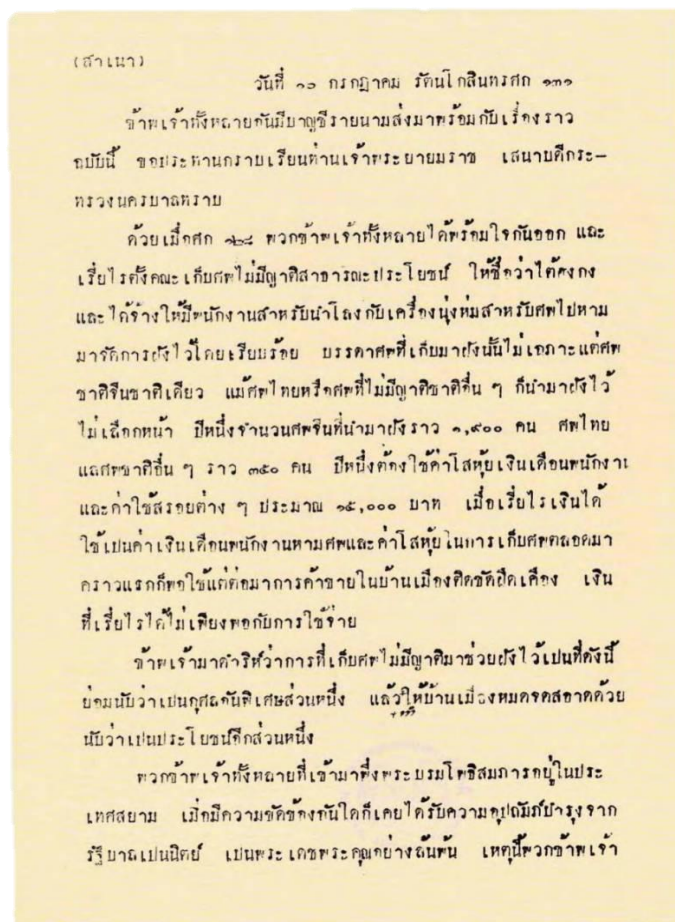 (สำเนา)
วันที่ ๑๐ กรกฎาคม รัตนโกสินทรศก ๑๓๑
ข้าพเจ้าทั้งหลายอันมีบาญชีรายนามส่งมาพร้อมกับเรื่องราว
ฉบับนี้ ขอประทานกราบเรียนท่านเจ้าพระยายมราช เสนาบดีกระ-
ทรวงนครบาลทราบ
ด้วยเมื่อศก ๑๒๘ พวกข้าพเจ้าทั้งหลายได้พร้อมใจกันออก และ
เรี่ยไรตั้งคณะเก็บศพไม่มีญาติสาธารณะประโยชน์ ให้ชื่อว่าไต้ฮงกง
และได้จ้างให้มีพนักงานสำหรับนำโลงกับเครื่องนุ่งห่มสำหรับศพไปหาม
มาจัดการฝังไว้โดยเรียบร้อย บรรดาศพที่เก็บมาฝังนั้นไม่เฉภาะแต่ศพ
ชาติจีนชาติเดียว แม้ศพไทยหรือศพที่ไม่มีญาติชาติอื่น ๆ ก็นำมาฝังไว้
ไม่เลือกหน้า ปีหนึ่งจำนวนศพจีนที่นำมาฝังราว ๑,๙๐๐ คน ศพไทย
แลศพชาติอื่น ๆ ราว ๓๕๐ คน ปีหนึ่งต้องใช้ค่าโสหุ้ยเงินเดือนพนักงาน
และค่าใช้สรอยต่าง ๆ ประมาณ ๑๕,๐๐๐ บาท เมื่อเรี่ยไรเงินได้
ใช้เปนค่าเงินเดือนพนักงานหามศพและค่าโสหุ้ยในการเก็บศพตลอดมา
คราวแรกก็พอใช้แต่ต่อมาการค้าขายในบ้านเมืองติดขัดฝืดเคือง เงิน
ที่เรี่ยไรได้ไม่เพียงพอกับการใช้จ่าย
ข้าพเจ้ามาดำริห์ว่าการที่เก็บศพไม่มีญาติมาช่วยฝังไว้เปนที่ดังนี้
ย่อมนับว่าเปนกุศลอันพิเศษส่วนหนึ่ง แล้วให้บ้านเมืองหมดจดสอาดด้วย
นับว่าเปนประโยชน์อีกส่วนหนึ่ง
พวกข้าพเจ้าทั้งหลายที่เข้ามาพึ่งพระบรมโพธิสมภารอยู่ในประ
เทศสยาม เมื่อมีความขัดข้องอันใดก็เคยได้รับความอุปถัมภ์บำรุงจาก
รัฐบาลเปนนิตย์ เปนพระเดชพระคุณอย่างล้นพ้น เหตุนี้พวกข้าพเจ้า